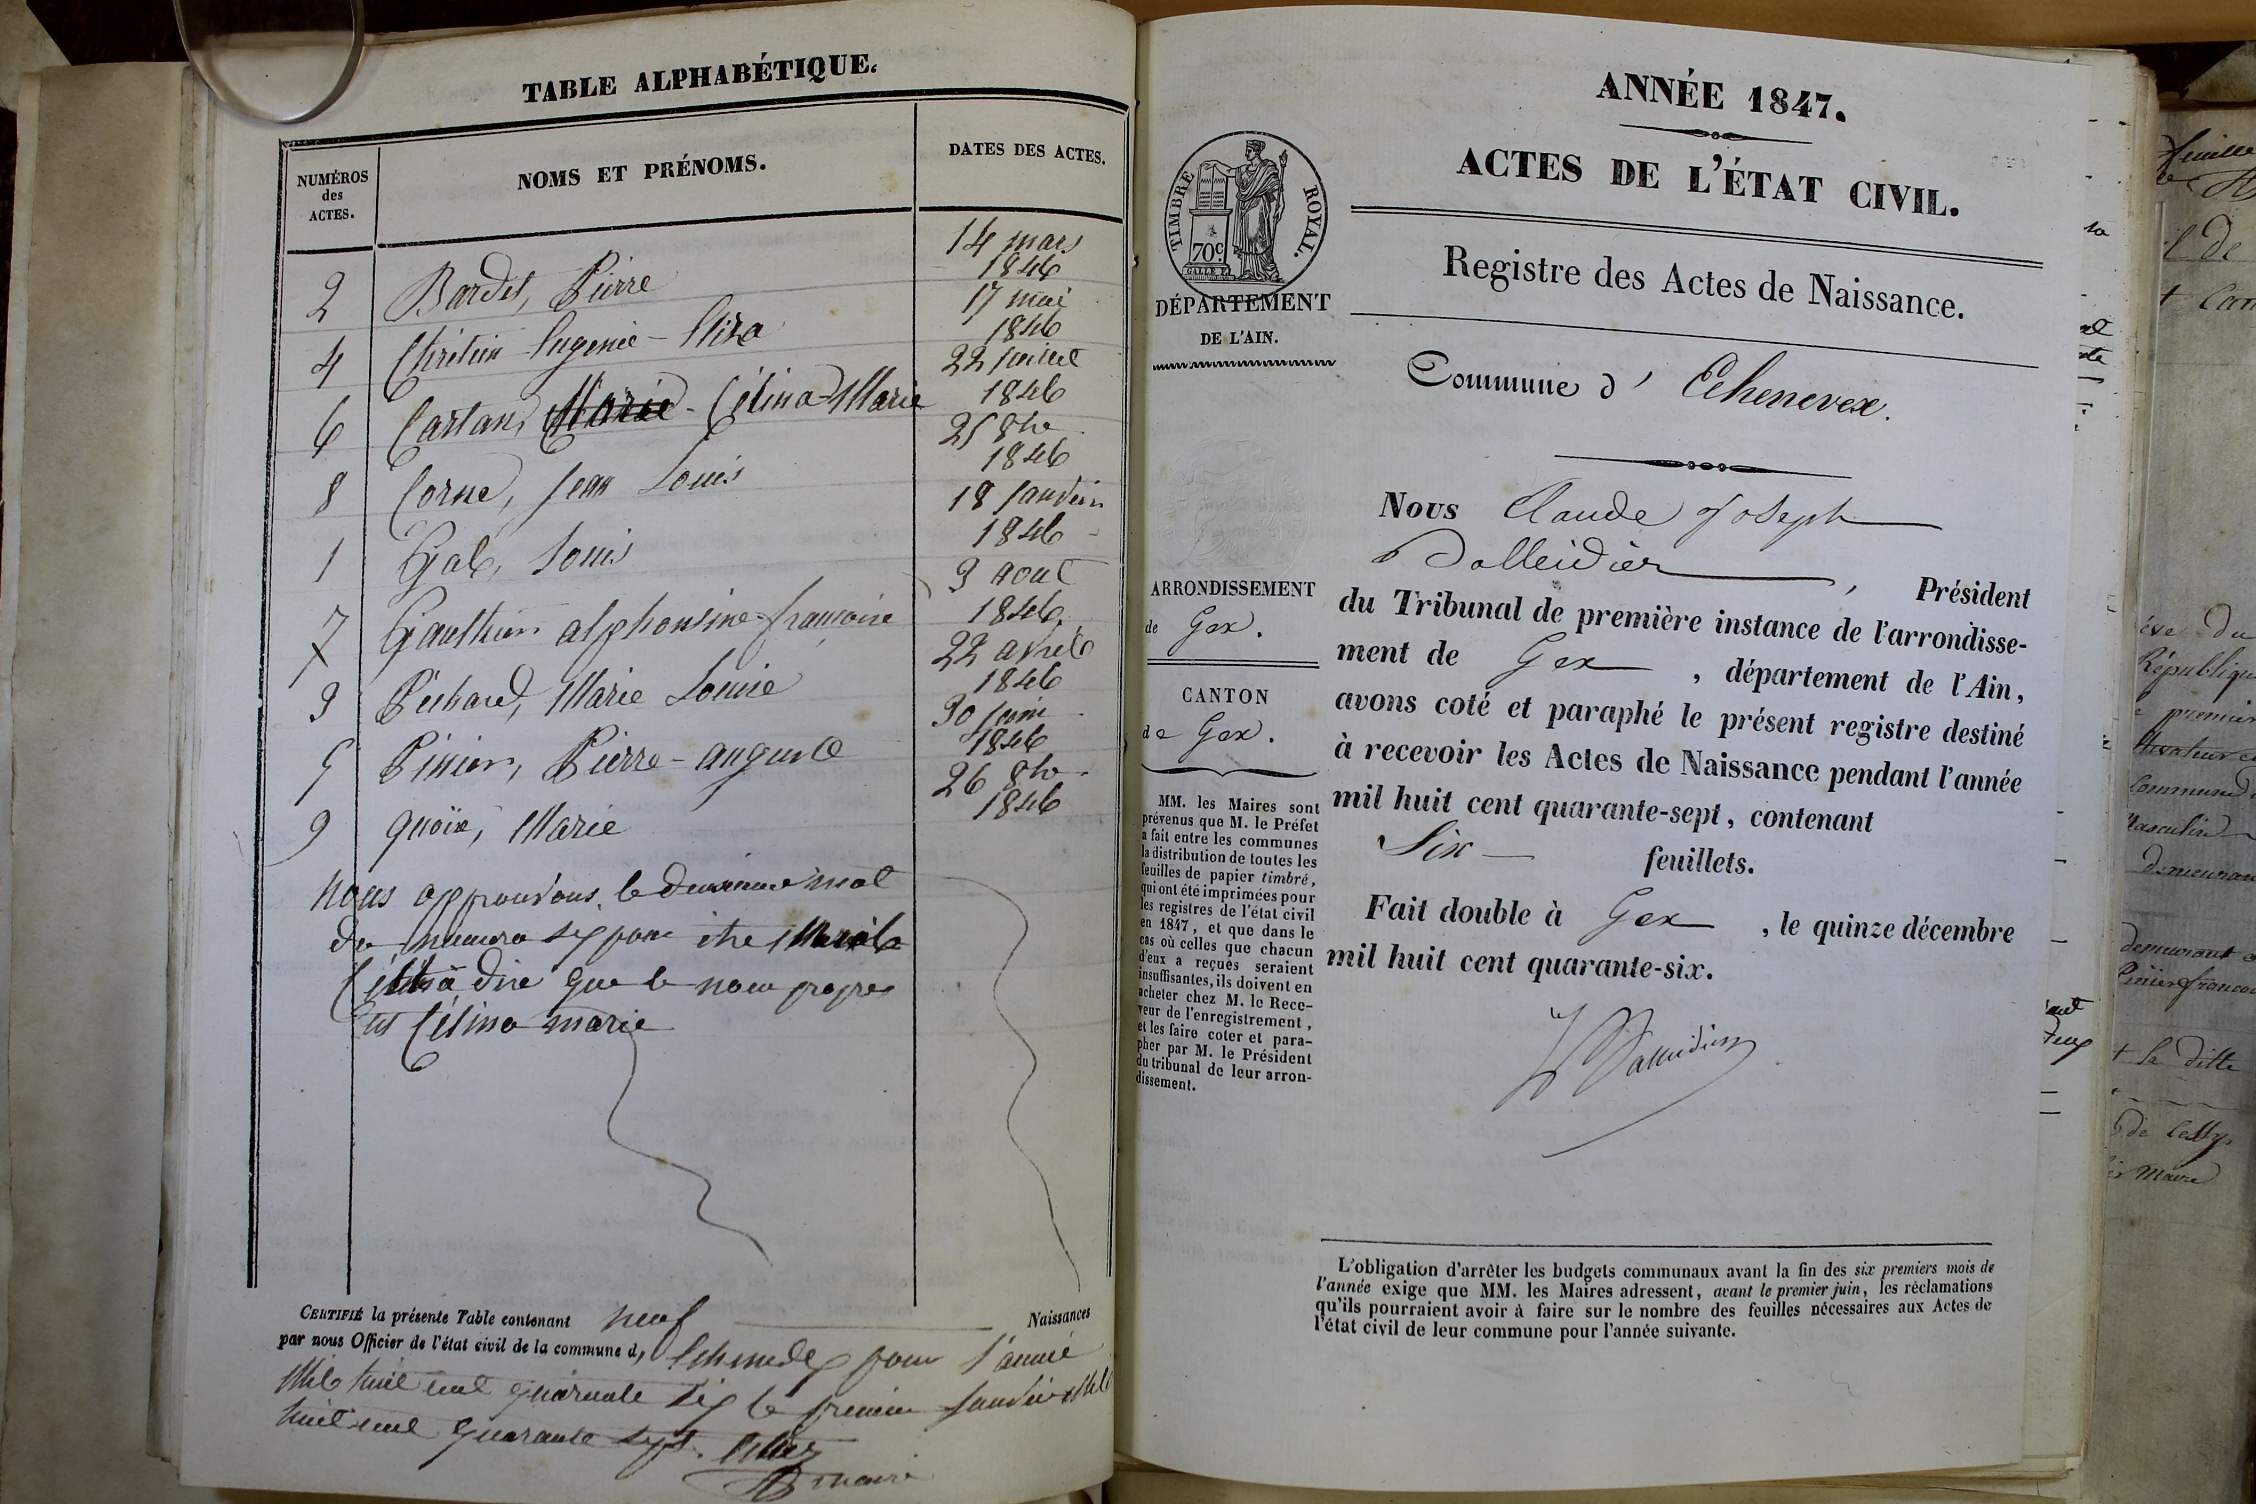 TABLE ALPHABÉTIQUE.
NUMÉROS
des
ACTES.
NOMS ET PRÉNOMS.
DATES DES ACTES.
2 Bardet, Pierre 14 mars 1846
4 Chrétien Eugenie - Eliza 17 mai 1846
6 Castan, Marie - Célina Marie 22 juillet 1846
8 Corne, Jean Louis 25 8bre 1846
1 Gal, Louis 18 Janvier 1846
7 Gaulthier alphonsine françoise 9 aout 1846
3 Péchard, Marie Louise 22 avril 1846
5 Pinier, Pierre - auguste 30 Juin 1846
9 quoix, Marie 26 8bre 1846
nous approuvons le deuxieme mot
du numero six pour être
dire que le nom propre
est Célina marie
CERTIFIÉ la présente Table contenant neuf Naissances
par nous Officier de l'état civil de la commune d, Echenevex pour l'année
Mil huit cent quarante six le premier Janvier Mil
huit cent quarante sept.
maire
ANNÉE 1847.
ACTES DE L'ÉTAT CIVIL.
Registre des Actes de Naissance.
TIMBRE ROYAL.
70c
DÉPARTEMENT
DE L'AIN.
Commune d' Echenevex.
ARRONDISSEMENT
de Gex.
CANTON
de Gex.
MM. les Maires sont
prévenus que M. le Préfet
a fait entre les communes
la distribution de toutes les
feuilles de papier timbré,
qui ont été imprimées pour
les registres de l'état civil
en 1847, et que dans le
cas où celles que chacun
d'eux a reçues seraient
insuffisantes, ils doivent en
acheter chez M. le Rece-
veur de l'enregistrement,
et les faire coter et para-
pher par M. le Président
du tribunal de leur arron-
dissement.
Nous Claude Joseph
Balleidier, Président
du Tribunal de première instance de l'arrondisse-
ment de Gex, département de l'Ain,
avons coté et paraphé le présent registre destiné
à recevoir les Actes de Naissance pendant l'année
mil huit cent quarante-sept, contenant
Six feuillets.
Fait double à Gex, le quinze décembre
mil huit cent quarante-six.
Balleidier
L'obligation d'arrêter les budgets communaux avant la fin des six premiers mois de
l'année exige que MM. les Maires adressent, avant le premier juin, les réclamations
qu'ils pourraient avoir à faire sur le nombre des feuilles nécessaires aux Actes de
l'état civil de leur commune pour l'année suivante.